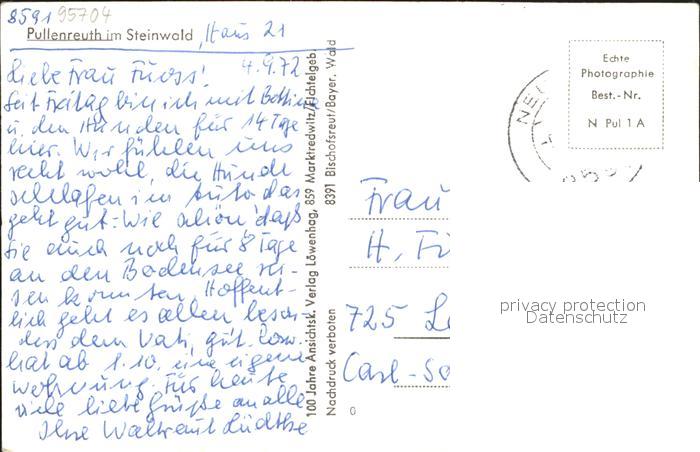 8591 95704
Pullenreuth im Steinwald, Haus 21
4.9.72
Liebe Frau Fuoss!
Seit Freitag bin ich mit Bettina
u. den Hunden für 14 Tage
hier. Wir fühlen uns
recht wohl, die Hunde
schlafen im Auto das
geht gut. Wie schön daß
Sie auch noch für 8 Tage
an den Bodensee rei-
sen konnten. Hoffent-
lich geht es allen beson-
ders dem Vati, gut.
hat ab 1.10. eine eigene
Wohnung. Für heute
viele liebe Grüße an alle
Ihre Waltraut Lüdtke
100 Jahre Ansichtsk. Verlag Löwenhag, 859 Marktredwitz/Fichtelgeb.
8391 Bischofsreut/Bayer. Wald
Nachdruck verboten
0
Echte
Photographie
Best.-Nr.
N Pul 1 A
Frau
H. Fü
725 Le
Carl-Sc
privacy protection
Datenschutz